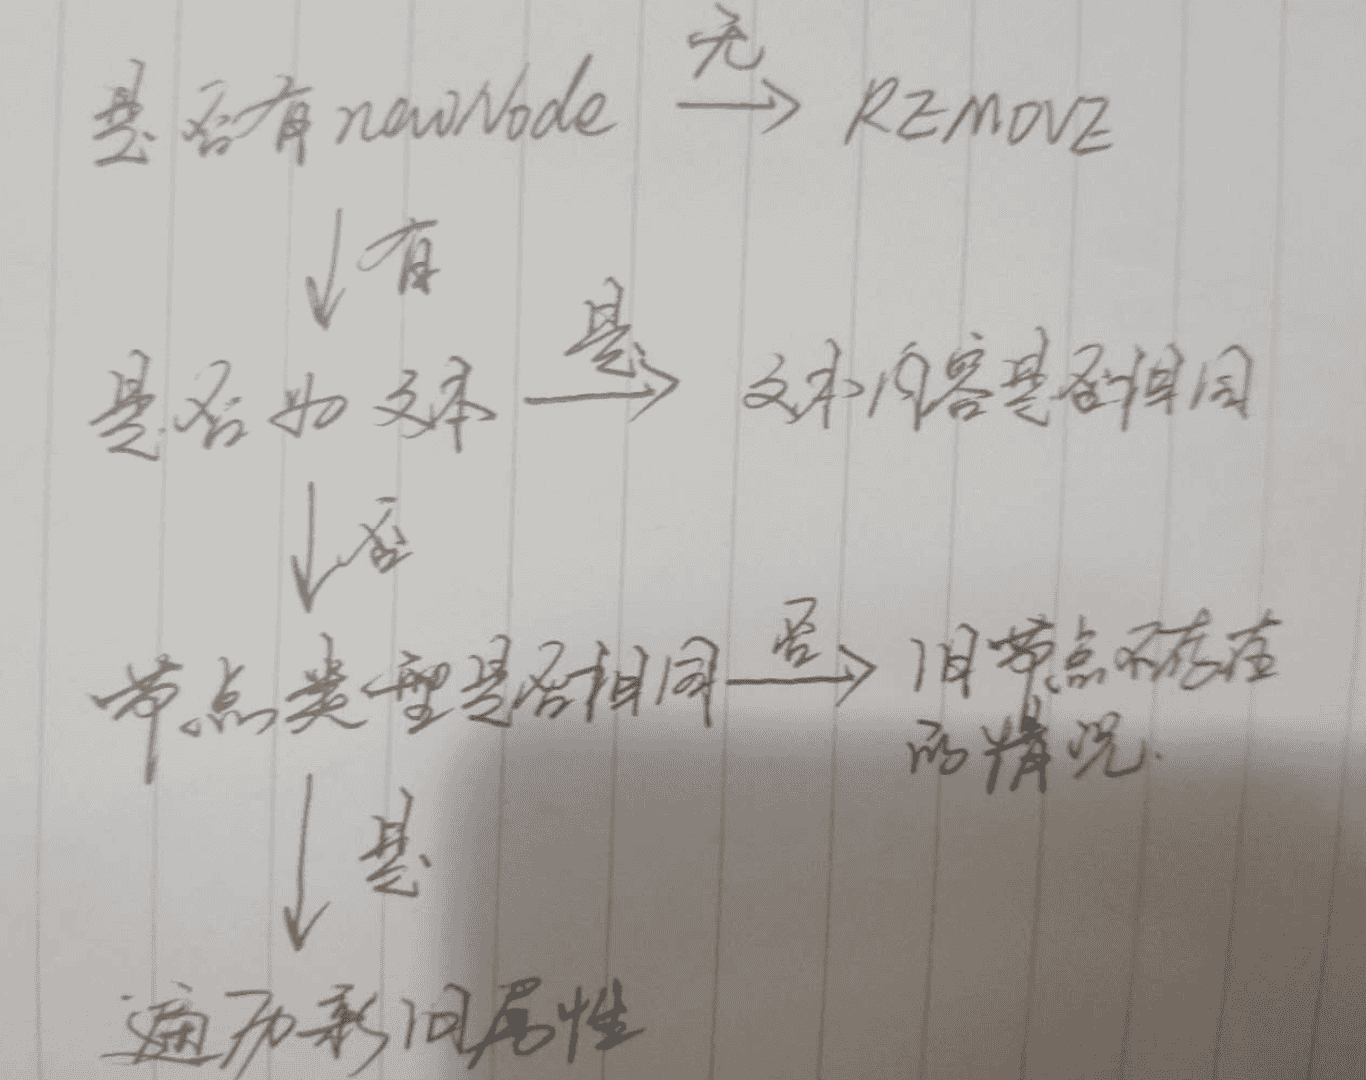 是否有newNode 无 REMOVE
有
是否为文本 是 文本内容是否相同
否
节点类型是否相同 否 旧节点不存在
的情况.
是
遍历新旧属性